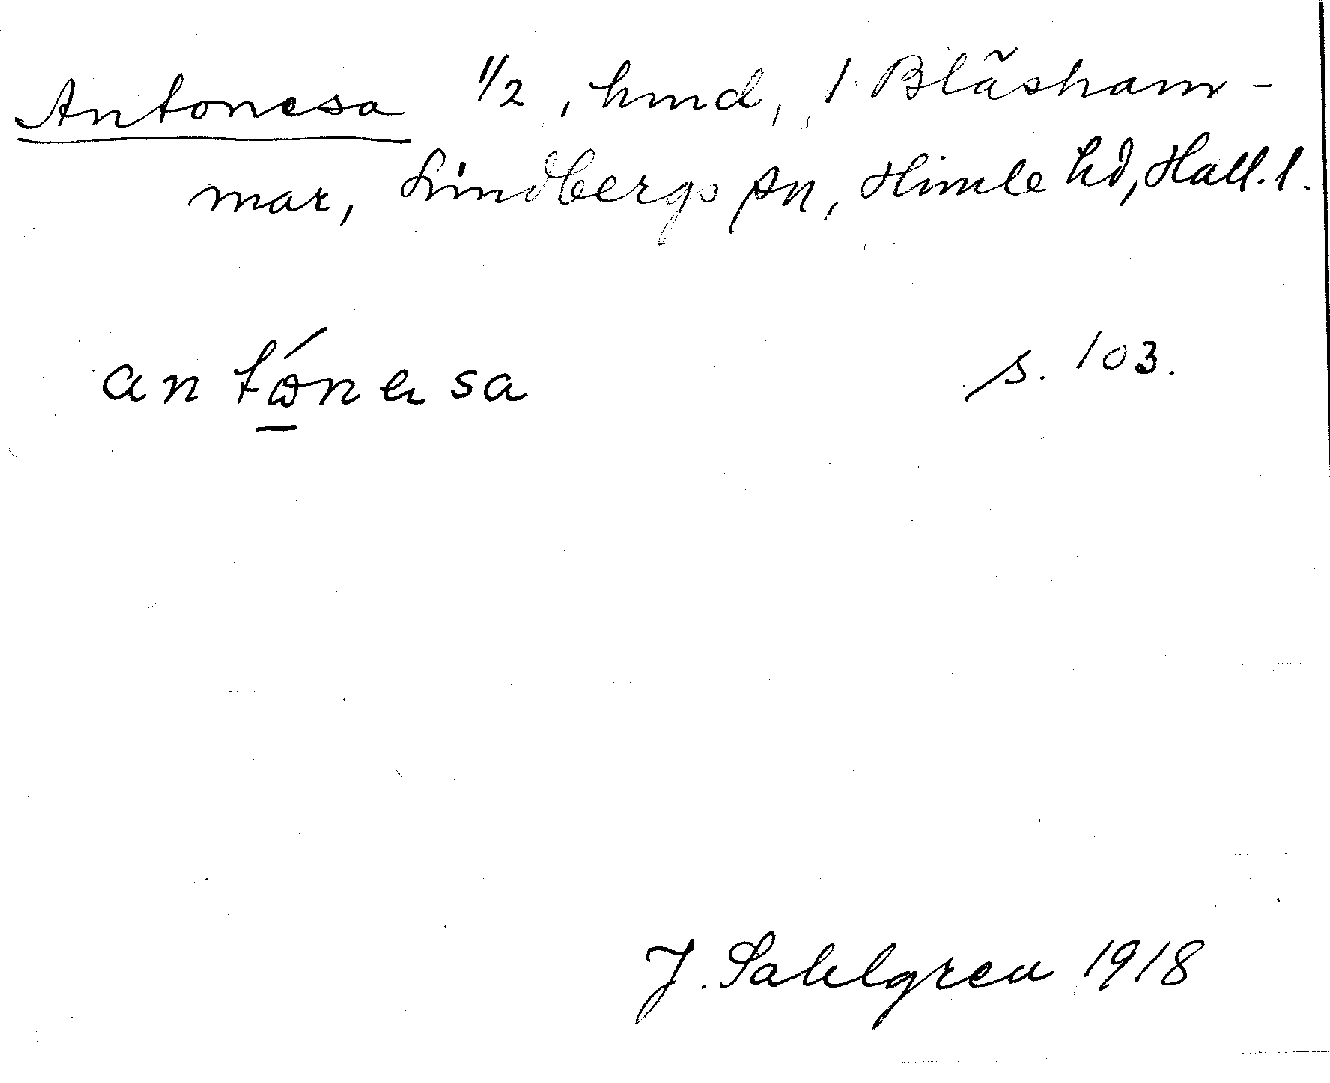 Antonesa 1/2, hmd, 1 Blåsham-
mar, Lindbergs sn, Himle hd, Hall. l.
antónəsa s. 103.
J. Sahlgren 1918